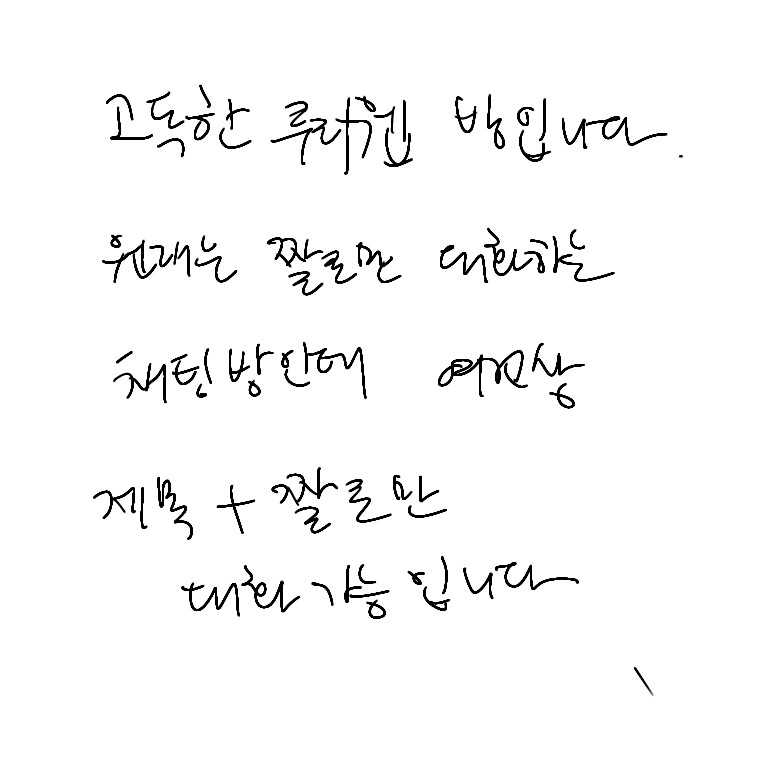 고독한 루리웹 방입니다.
원래는 짤로만 대화하는
채팅방인데 여건상
제목 + 짤로만
대화 가능 입니다